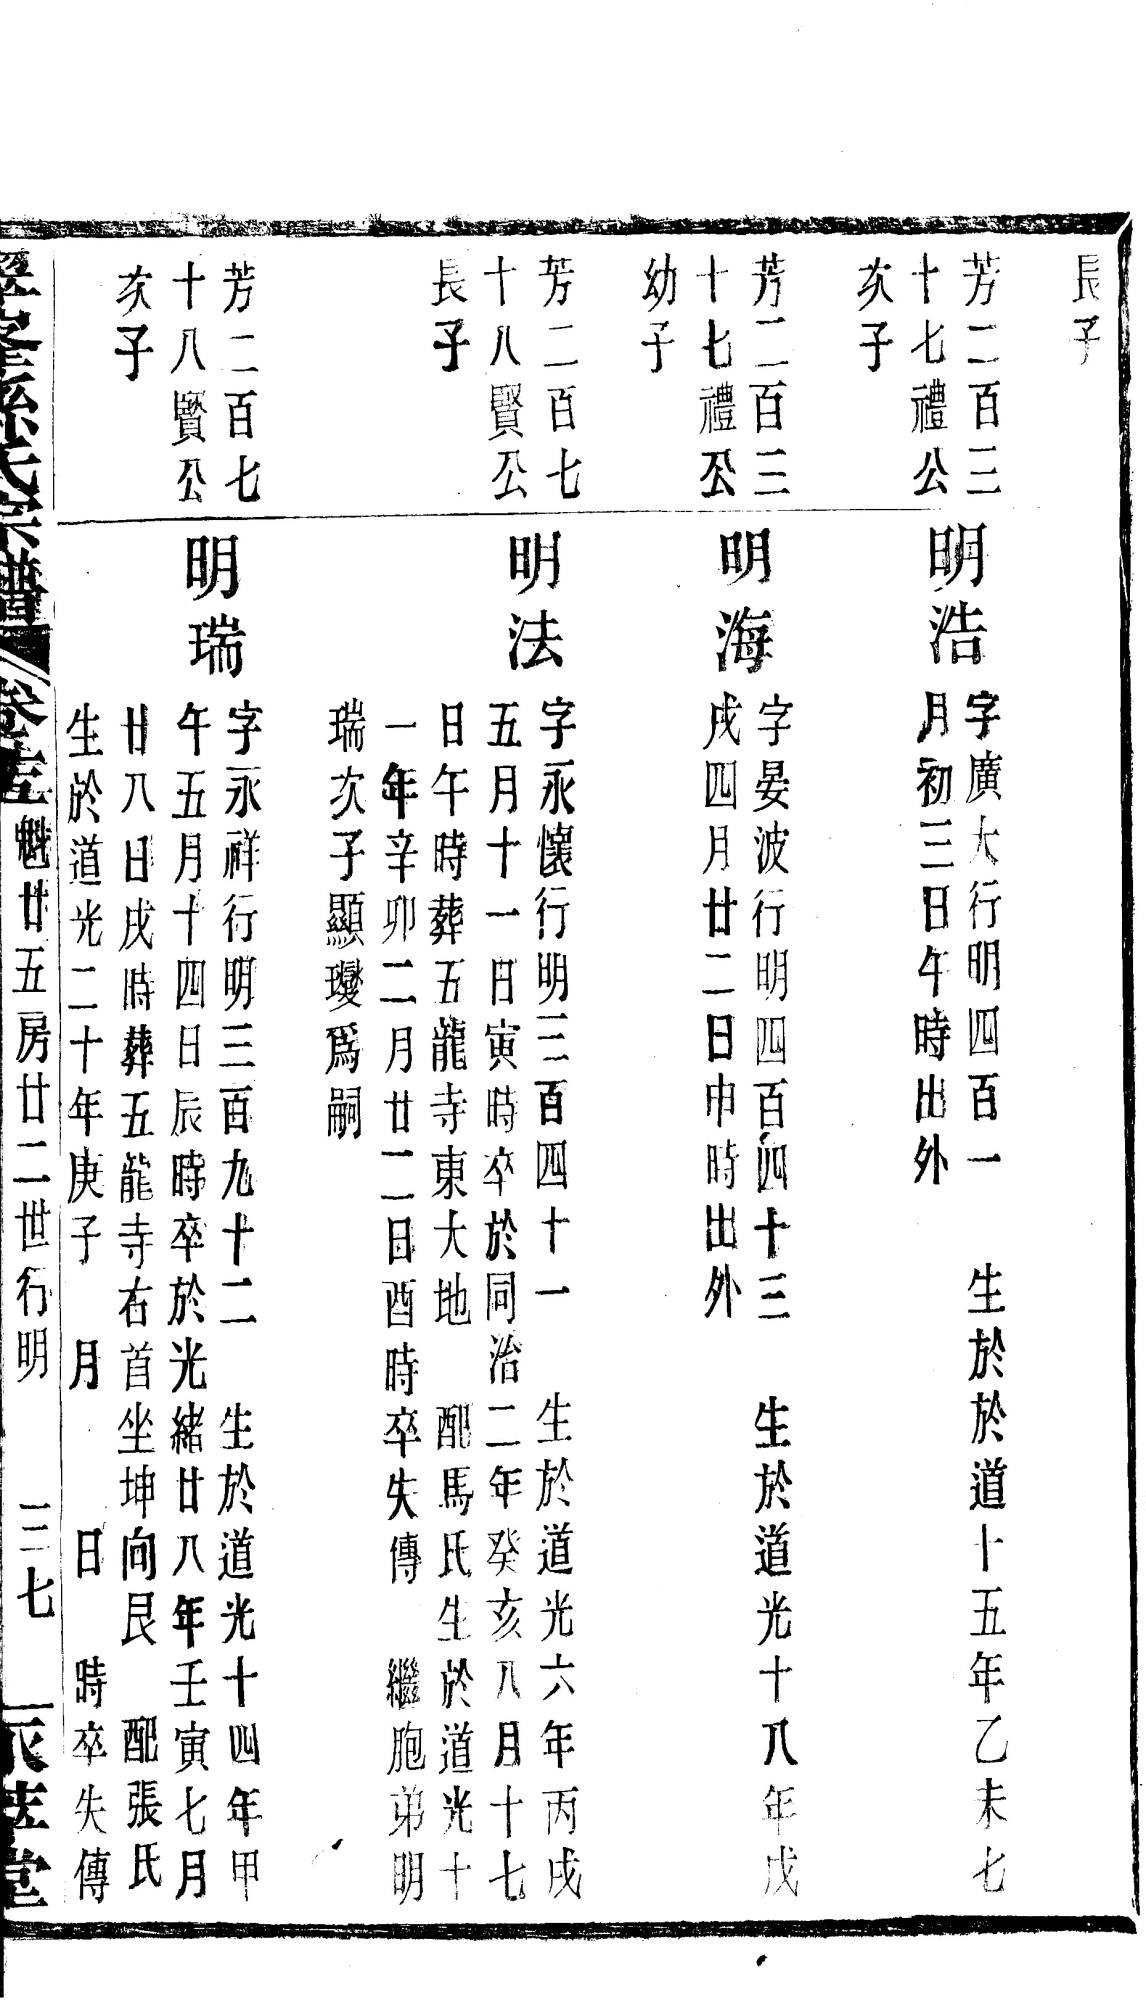 長子
芳二百三
十七禮公
次子
明浩
字廣大行明四百一　生於於道十五年乙未七
月初三日午時出外
芳二百三
十七禮公
幼子
明海
字晏波行明四百四十三　生於道光十八年戊
戌四月廿二日申時出外
芳二百七
十八賢公
長子
明法
字永懷行明三百四十一　生於道光六年丙戌
五月十一日寅時卒於同治二年癸亥八月十七
日午時葬五龍寺東大地　配馬氏生於道光十
一年辛卯二月廿二日酉時卒失傳　繼胞弟明
瑞次子顯瓊爲嗣
芳二百七
十八賢公
次子
明瑞
字永祥行明三百九十二　生於道光十四年甲
午五月十四日辰時卒於光緒廿八年壬寅七月
廿八日戌時葬五龍寺右首坐坤向艮　配張氏
生於道光二十年庚子　月　　日　時卒失傳
孫氏宗譜　魁廿五房廿二世行明　三七